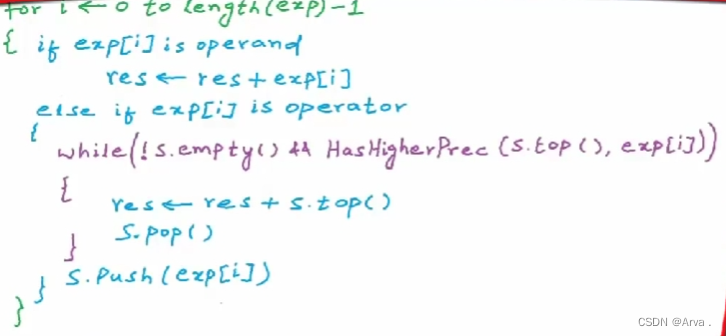 for i ← 0 to length(exp)-1
{ if exp[i] is operand
res ← res + exp[i]
else if exp[i] is operator
{
while(!s.empty() && HasHigherPrec(s.top(), exp[i]))
{
res ← res + s.top()
s.pop()
}
s.push(exp[i])
}
}
CSDN @Arva .